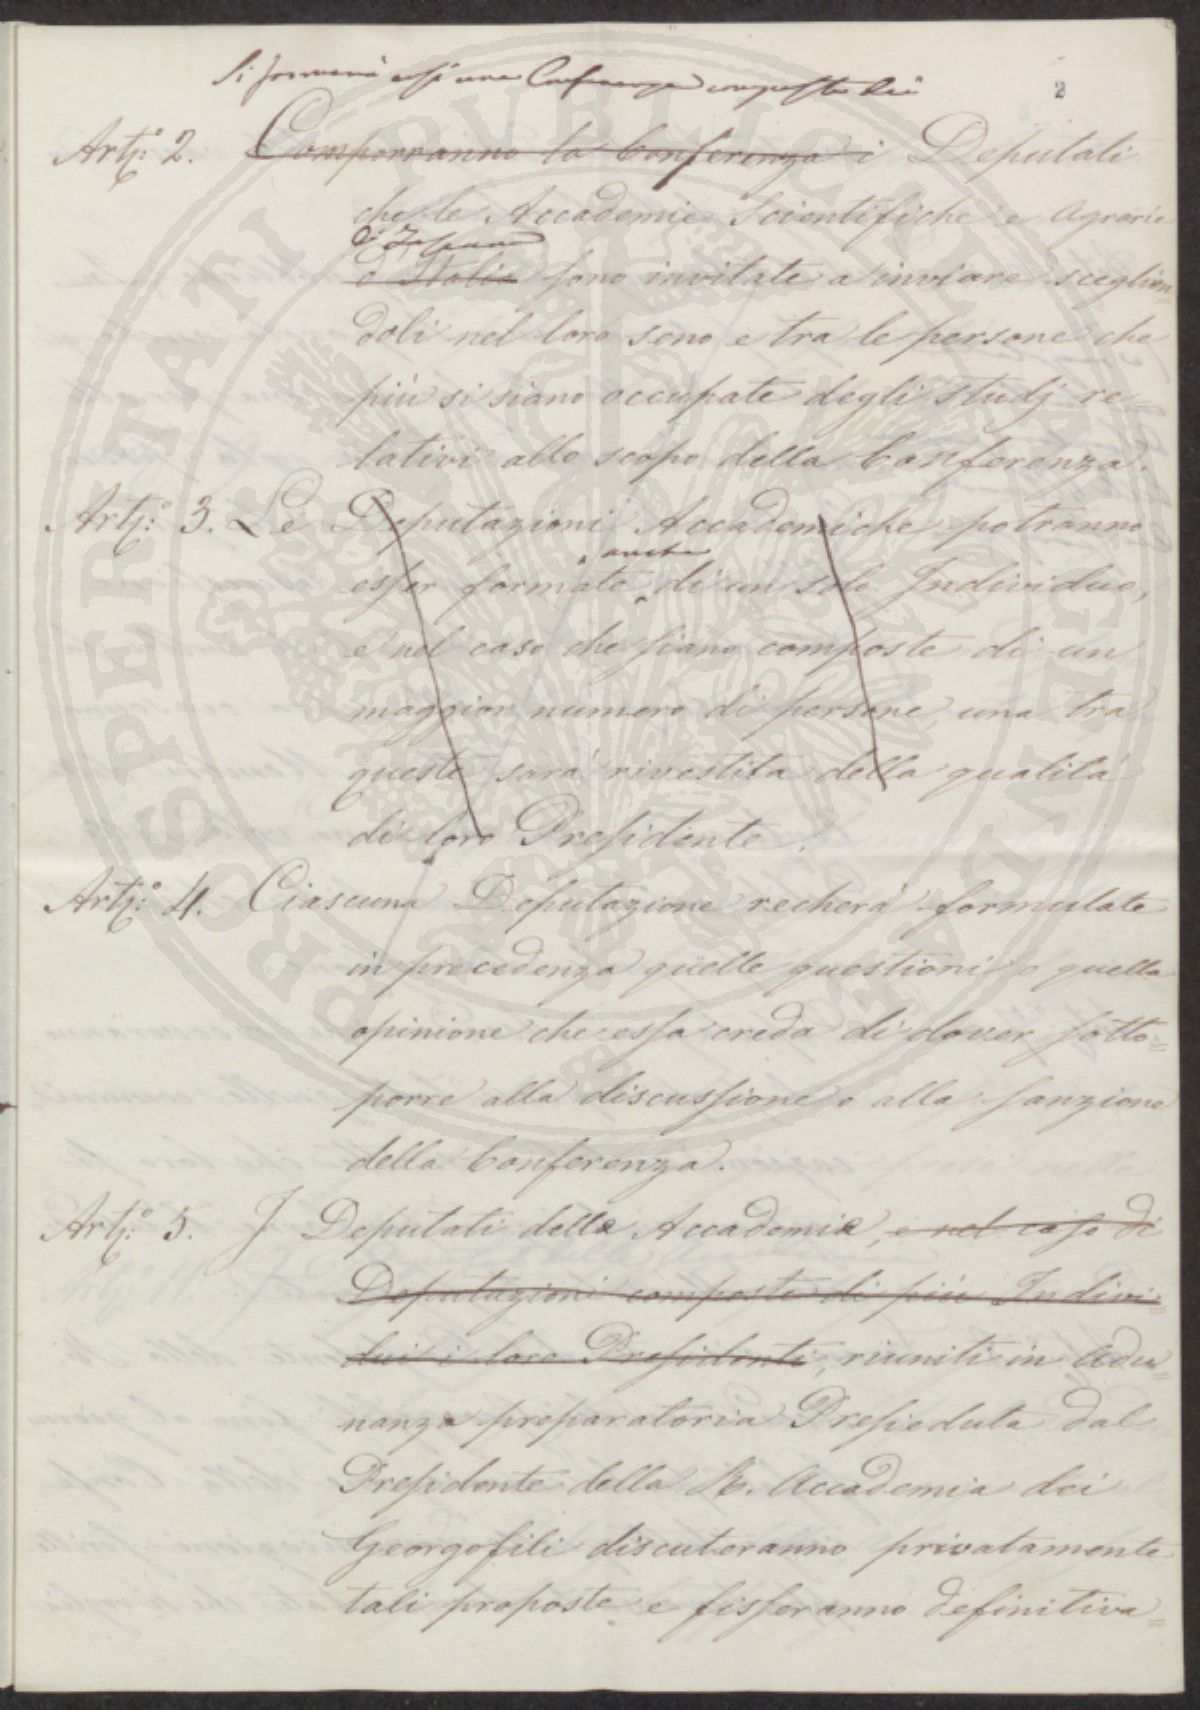 2
Si formerà essa una Conferenza composta dei
Art.° 2. Comporranno la Conferenza i Deputati
che le Accademie Scientifiche e Agrarie
di Toscana
e Italia sono invitate a inviare sceglien
doli nel loro seno e tra le persone che
più si siano occupate degli studj re=
lativi allo scopo della Conferenza.
Art.° 3. Le Deputazioni Accademiche potranno
anche
esser formate di un solo Individuo,
e nel caso che siano composte di un
maggior numero di persone, una tra
queste sarà rivestita della qualità
di loro Presidente.
Art.° 4. Ciascuna Deputazione recherà formulate
in precedenza quelle questioni e quella
opinione che essa creda di dover sotto=
porre alla discussione e alla sanzione
della Conferenza.
Art.° 5. I Deputati delle Accademie, e nel caso di
Deputazioni composte di più Indivi=
dui i loro Presidenti, riuniti in Adu=
nanza preparatoria Presieduta dal
Presidente della R. Accademia dei
Georgofili discuteranno privatamente
tali proposte e fisseranno definitiva=
PROSPERITATI PUBLICAE AUGENDAE